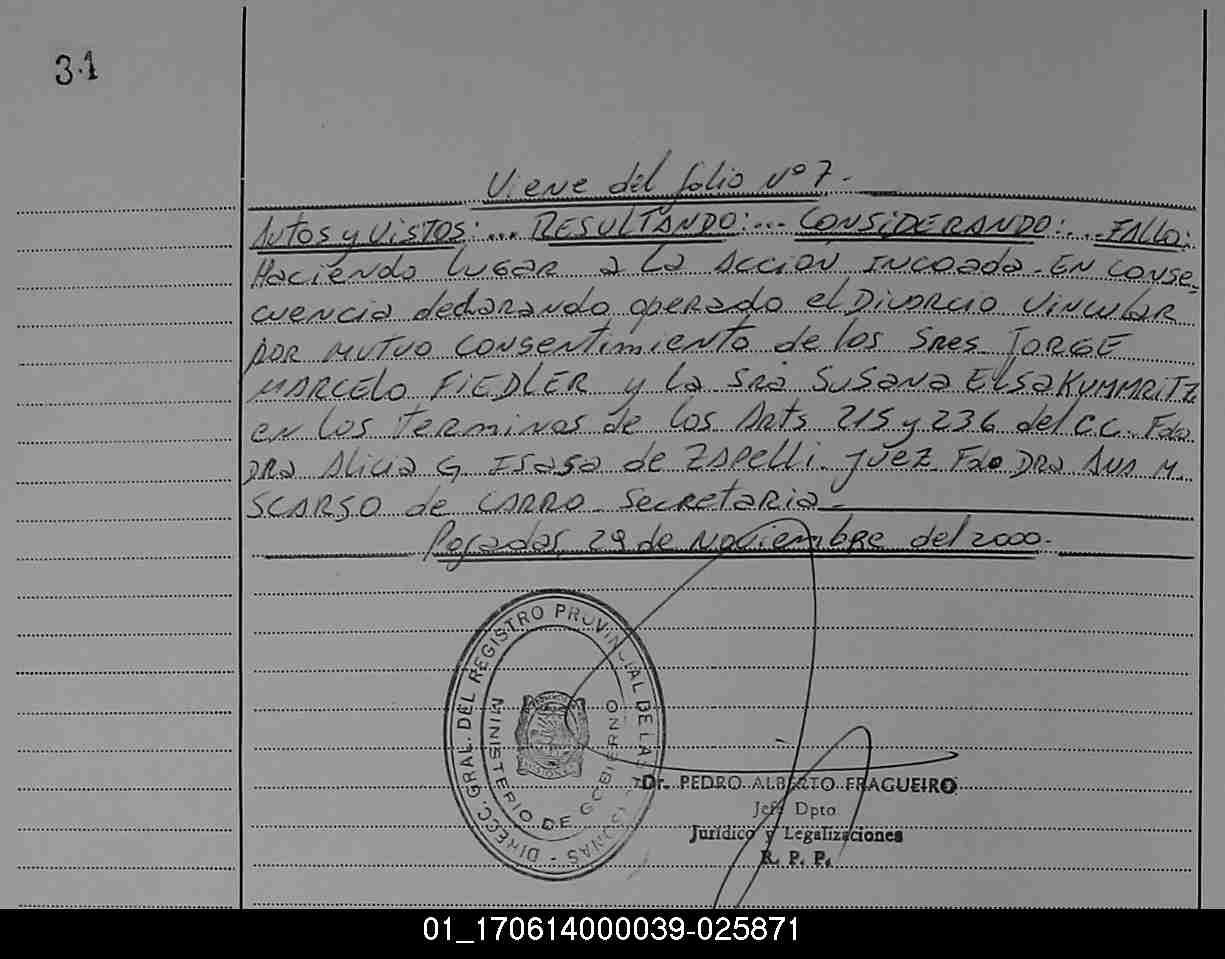 31
Viene del folio Nº 7.
Autos y Vistos:... RESULTANDO:... CONSIDERANDO:... FALLO:
Haciendo lugar a la acción incoada. En conse-
cuencia declarando operado el Divorcio Vincular
por mutuo consentimiento de los Sres. JORGE
MARCELO FIEDLER y la Sra SUSANA ELSA KUMMRITZ
en los terminos de los Arts 215 y 236 del C.C. Fdo
Dra Alicia G. Isasa de Zapelli. Juez Fdo Dra Ana M.
SCARSO de CARRO. Secretaria.
Posadas, 29 de Noviembre del 2000.
DIRECC. GRAL. DEL REGISTRO PROVINCIAL DE LAS
MISIONES
MINISTERIO DE GOBIERNO
Dr. PEDRO ALBERTO FRAGUEIRO
Jefe Dpto
Jurídico y Legalizaciones
R. P. P.
01_170614000039-025871